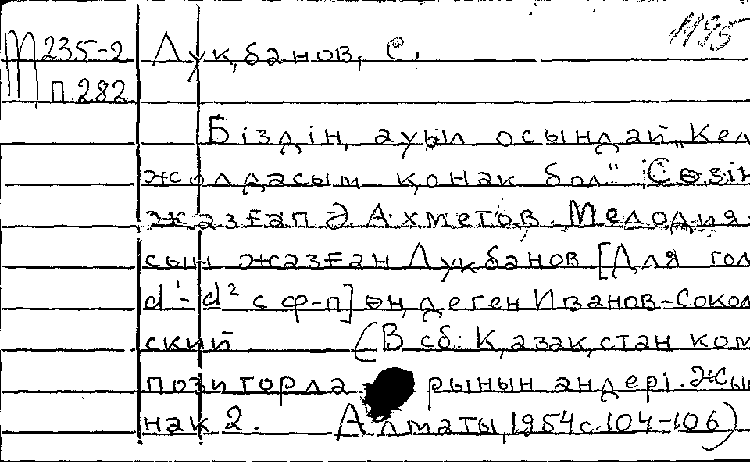 М 235-2 Луқбанов, С. 1195
П 282
Біздің ауыл осындай „Кел
жолдасым қонақ бол" Сөзін
жазған Ә Ахметов. Мелодия
сын жазған Лукбанов [Для гол
d¹-d² с ф-п] өңдеген Иванов-Сокол
ский (В сб: Қазақстан ком
позиторла рынын андері. Жы
нак 2. Алматы, 1954 с. 104-106)